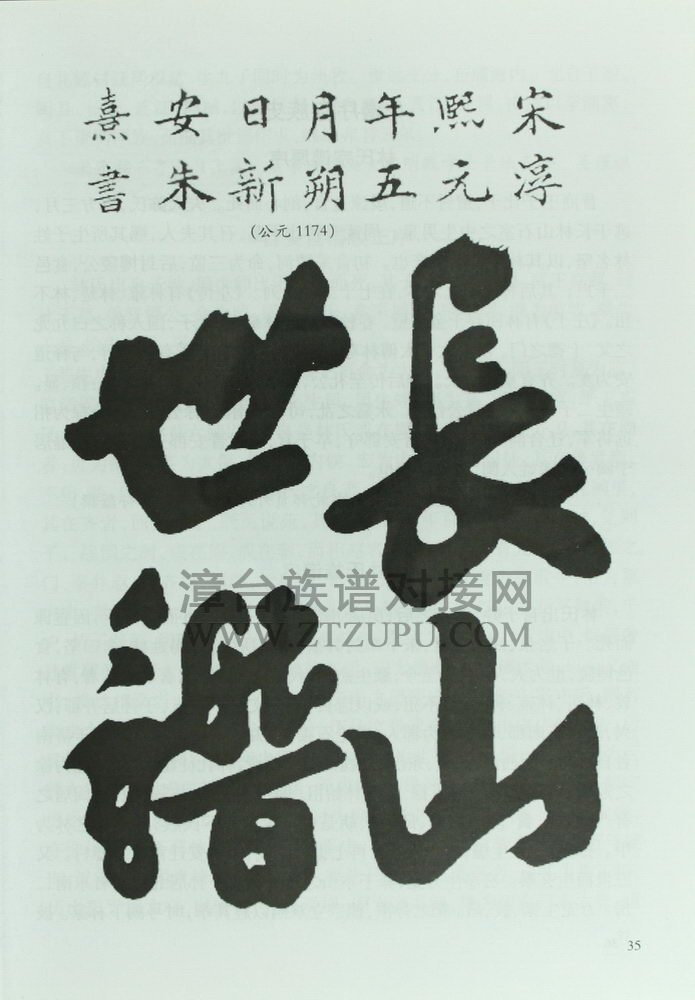 宋淳
熙元
年五
月朔
日新
安朱
熹書
(公元1174)
長山
世譜
漳台族谱对接网
WWW.ZTZUPU.COM
35